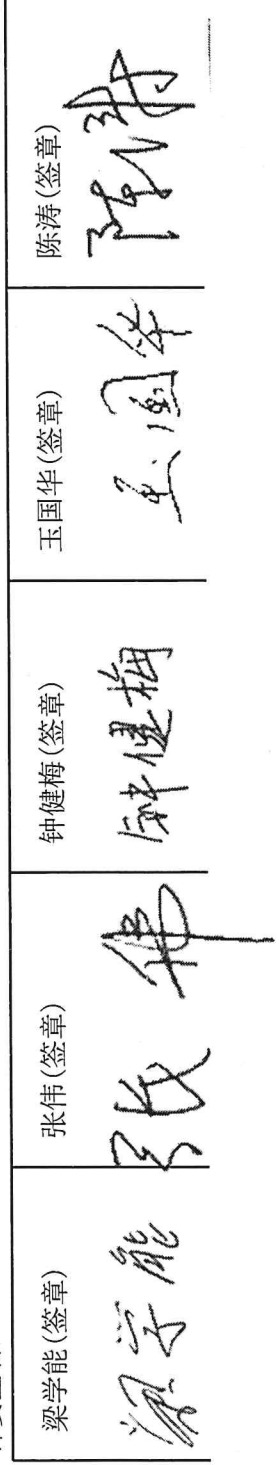 梁学能(签章)
张伟(签章)
钟健梅(签章)
玉国华(签章)
陈涛(签章)
梁学能
张伟
钟健梅
玉国华
陈涛